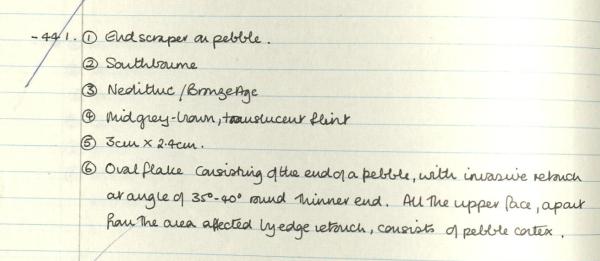 -441. ① Endscraper on pebble.
② Southbourne
③ Neolithic / Bronze Age
④ Mid grey-brown, translucent flint
⑤ 3cm × 2.4cm.
⑥ Oval flake consisting of the end of a pebble, with invasive retouch
at angle of 35°-40° round thinner end. All the upper face, apart
from the area affected by edge retouch, consists of pebble cortex.